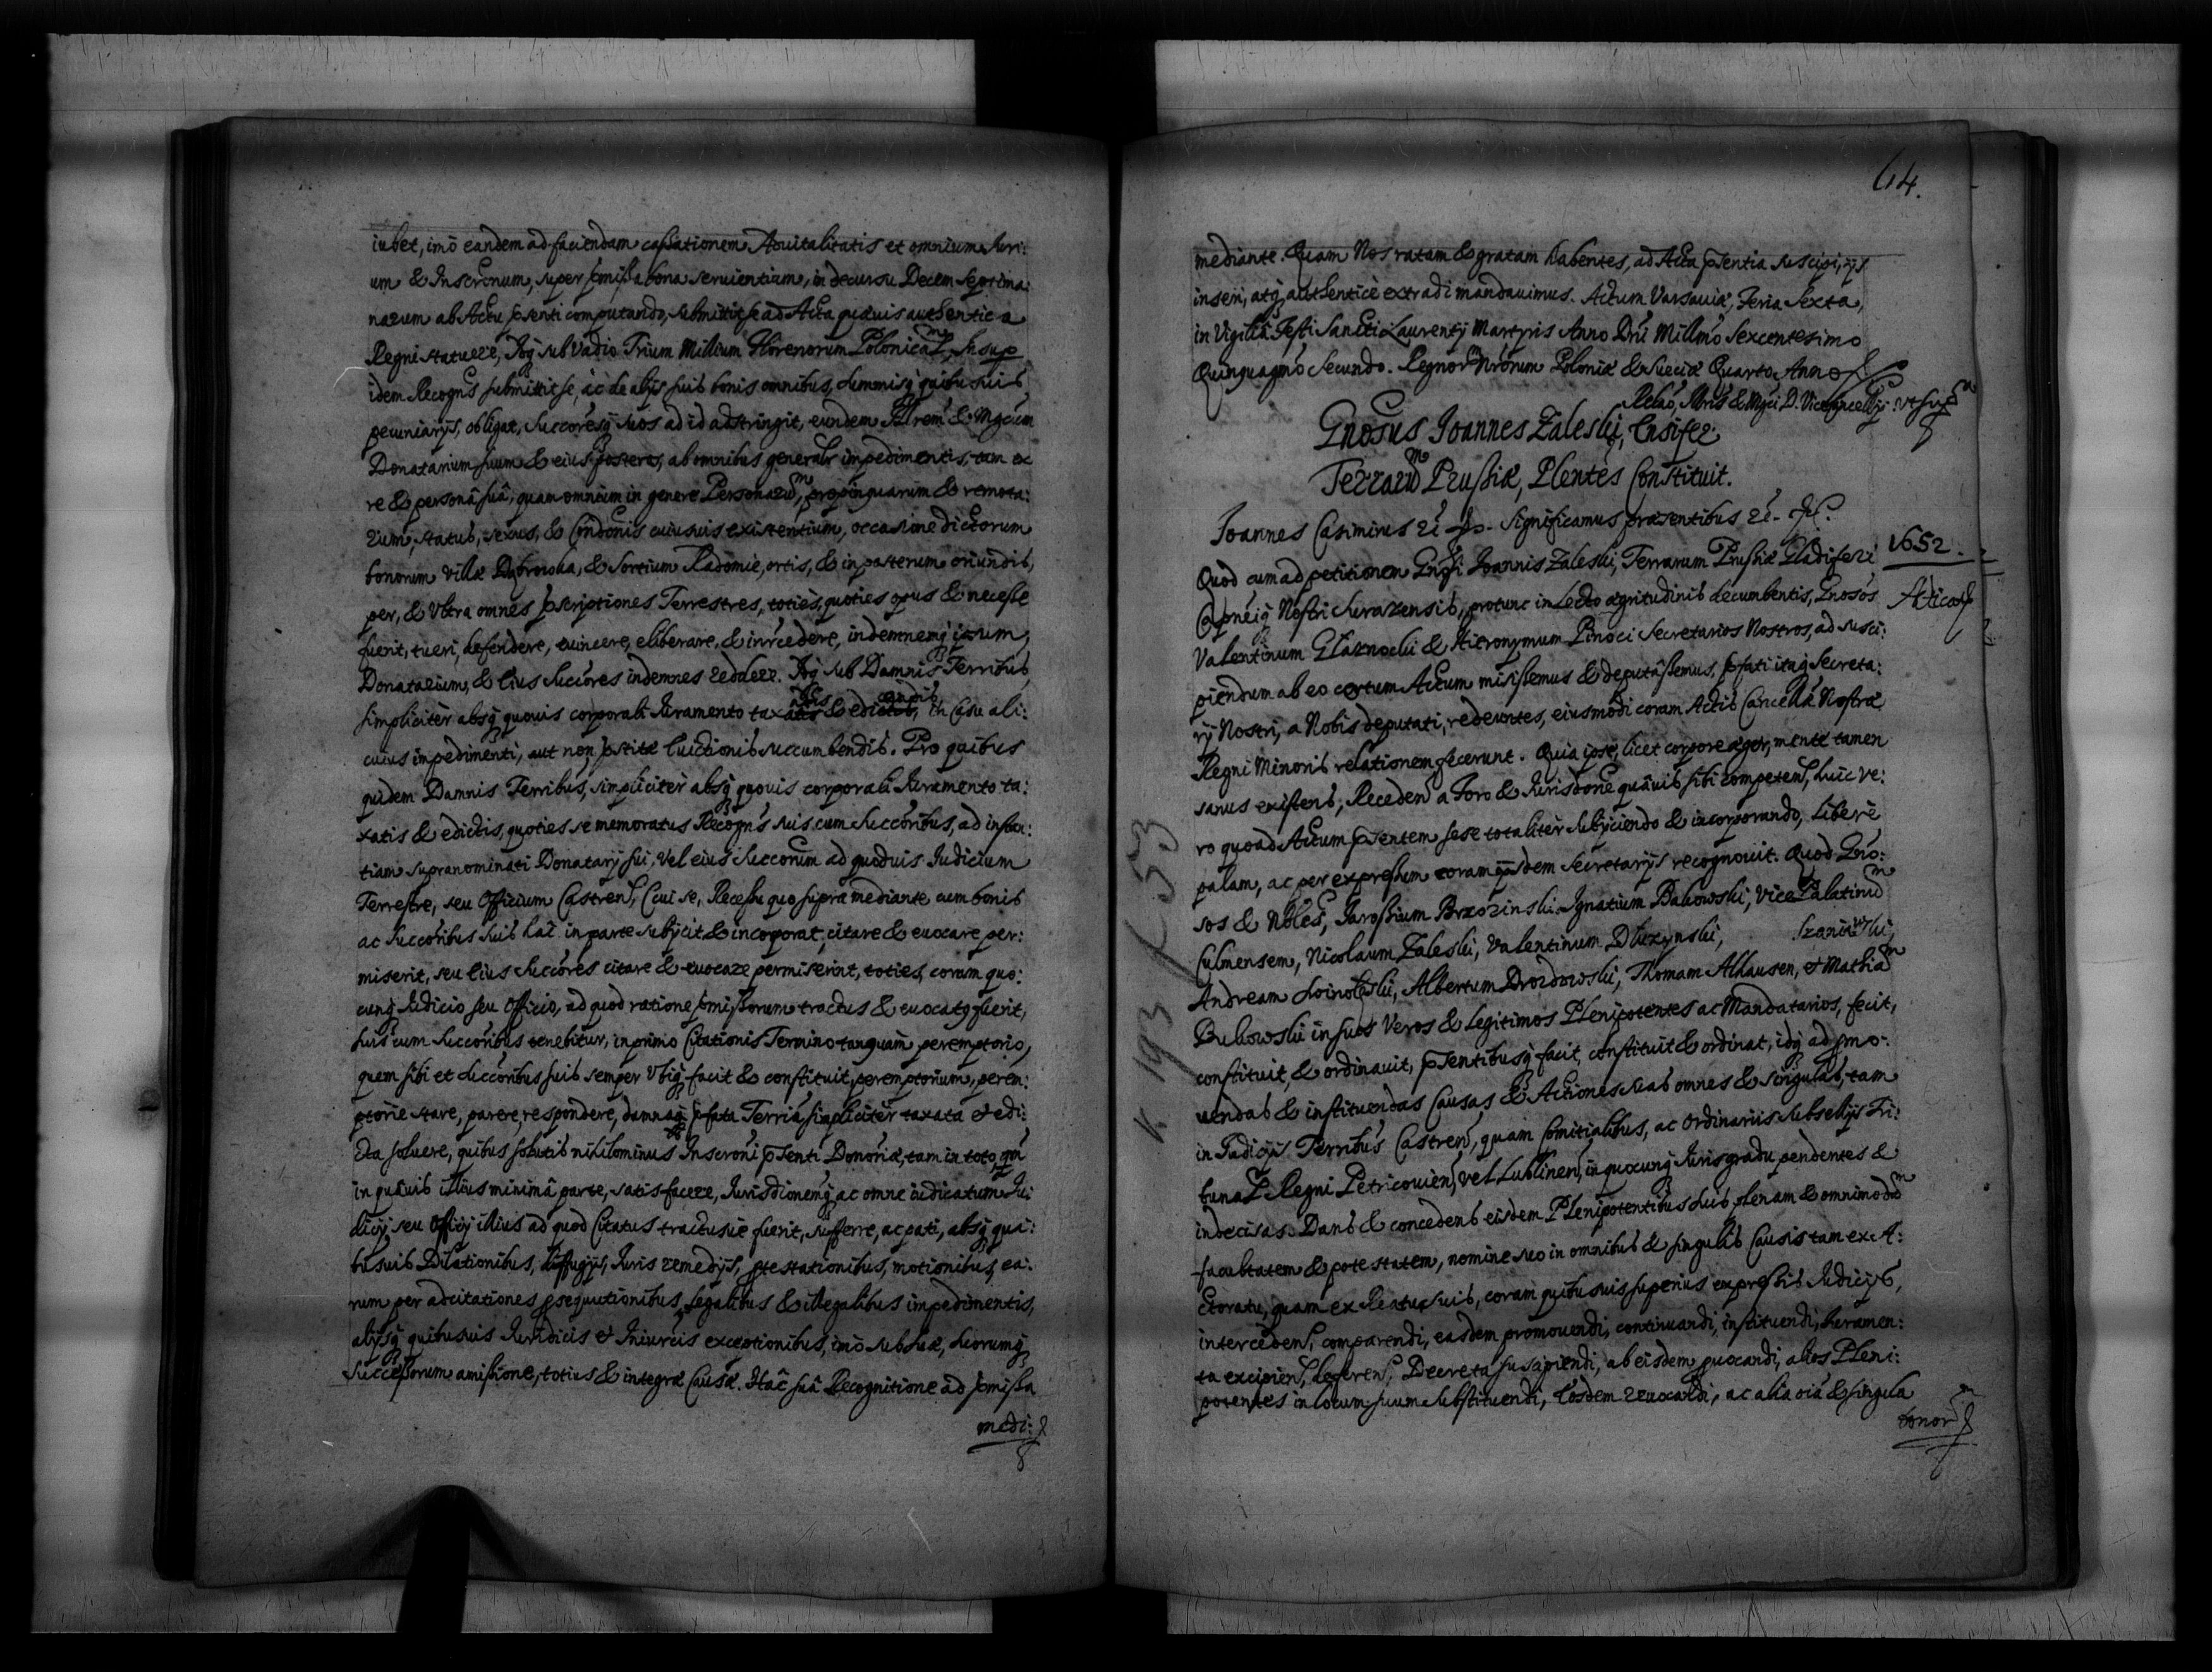 iubet, imo eandem ad faciendam cassationem Aduitalitatis et omnium Iuri:
um & Inscrõnum, super pmissa bona seruientium, in decursu Decem Septima:
narum ab Actu pñti computando, submittit se ad Acta quæuis authentica
Regni statuere, Idq̃ sub Vadio Trium Millium Florenorum Polonical̃, Insup
idem Recogñs submittit se, ac de alijs suis bonis omnibus, summisq̃ quibusuis
pecuniarijs, obligat, Succõresq̃ suos ad id adstringit, eundem Illrem & Mgcũm
Donatarium suum & eius posteros, ab omnibus generalr impedimentis, tam ex
re & personâ suâ, quam omnium in genere Personarũ, propinquarum & remota:
rum, status, sexus, & Condõnis cuiusuis existentium, occasione dictorum
bonorum Villæ Dąbrowka, & Sortium Radomie, ortis, & in posterum oriundis,
per, & Vltra omnes pscriptiones Terrestres, toties, quoties opus & necesse
fuerit, tueri, defendere, euincere, eliberare, & intercedere, indemnemq̃ ipsum
Donatarium, & Eius Succõres indemnes reddere. Idq̃ sub Damnis Terribus,
simpliciter absq̃ quouis corporali Iuramento taxatis & edictis, in Casu ali:
cuius impedimenti, aut non pstitæ Euictionis succumbendis. Pro quibus
quidem Damnis Terribus, simpliciter absq̃ quouis corporali Iuramento ta:
xatis & edictis, quoties se memoratus Recogñs suis cum Succõribus, ad instan:
tiam supranominati Donatarij sui, Vel eius Succorum ad quoduis Iudicium
Terrestre, seu Officium Castren̄, Cui se, Recessu quo supra mediante cum bonis
ac Succõribus suis hac in parte subijcit & incorporat, citare & euocare per:
miserit, seu Eius Succõres citare & euocare permiserint, toties, coram quo:
cunq̃ Iudicio seu Officio, ad quod ratione pmissorum tractus & euocatq fuerit,
suis cum Succõribus tenebitur, in primo Citationis Termino tanquam peremptorio,
quem sibi et Succõribus suis semper Vbiq̃ facit & constituit, peremptorium, perem:
ptorie stare, parere, respondere, damnaq̃ pfata Terria simpliciter taxata & edi:
cta soluere, quibus solutis nihilominus Inscrõni pñti Donõriæ, tam in toto, qm̃
in quâuis illius minimâ parte, satisfacere, Iurisdõnemq̃ ac omne iudicatum Iu:
dicij, seu Officij illius ad quod Citatus tractusue fuerit, sufferre, ac pati, absq̃ qui:
busuis Dilationibus, diffugijs, Iuris remedijs, ptestationibus, motionibus, ea:
rum per adcitationes psequutionibus, legalibus & illegalibus impedimentis,
alijsq̃ quibusuis Iuridicis & Iniurcis exceptionibus, imo sub suæ, suorumq̃
Successorum amissione, totius & integræ Causæ. Hac suâ Recognitione ad pmissa
medi:
64.
mediante. Quam Nos ratam & gratam habentes, ad Acta pñtia suscipi, ijs
inseri, atq̃ authentice extradi mandauimus. Actum Varsauiæ, Feria Sexta,
in Vigiliâ Festi Sancti Laurentij Martyris Anno Dñi Millmo Sexcentesimo
Quinquagmo Secundo. Regnorũ Nrorum Poloniæ & Sueciæ Quarto Anno
Relao, Illris & Mgci D. Vicecancellrij: Vt supra
Gnosus Ioannes Zaleski, Ensifer
Terrarũ Prussiæ, Plentes Constituit.
Ioannes Casimirus &c. Significamus præsentibus &c.
1652.
Quod cum ad petitionem Gnosi Ioannis Zaleski, Terrarum Prussiæ Gladiferi
Capneiq̃ Nostri Surazensis, protunc in Lecto ægritudinis decumbentis, Gnosos
Valentinum Glaznocki & Hieronymum Pinoci Secretarios Nostros, ad susci:
piendum ab eo certum Actum misissemus & deputassemus, pfati itaq̃ Secreta:
rij Nostri, a Nobis deputati, redeuntes, eiusmodi coram Actis Cancellæ Nostræ
Regni Minoris relationem fecerunt. Quia ipse, licet corpore æger, mente tamen
sanus existens, Recedens a Foro & Iurisdõne quâuis sibi competen̄, huic ve:
ro quoad Actum psentem sese totaliter subijciendo & incorporando, libere
palam, ac per expressum coram ijsdem Secretarijs recognouit. Quod Gno:
sos & Nobles, Iarossium Brzozinski, Ignatium Bakowski, Vice Palatinũ
Culmensem, Nicolaum Zaleski, Valentinum Dluzynski, Szaniawski,
Andream Swinolski, Albertum Drozdowski, Thomam Alhausen, & Mathiã
Bukowski in suos Veros & legitimos Plenipotentes ac Mandatarios, fecit,
constituit, & ordinauit, psentibusq̃ facit constituit & ordinat, idq̃ ad pmo:
uendas & instituendas Causas & Actiones suas omnes & singulas, tam
in Iudicijs Terribus Castren̄, quam Comitialibus, ac Ordinarijs Subsellijs Tri:
bunal̃ Regni Petricouien̄, vel Lublinen̄, in quocunq̃ Iuris gradu pendentes &
indecisas. Dans & concedens eisdem Plenipotentibus suis plenam & omnimodã
facultatem & potestatem, nomine suo in omnibus & singulis Causis tam ex A:
ctoratu, quam ex Reatu suis, coram quibusuis superius expressis Iudicijs,
interceden̄, comparendi, easdem promouendi, continuandi, instituendi, Iuramen:
ta excipien̄, deferen̄, Decreta suscipiendi, ab eisdem puocandi, alios Pleni:
potentes in locum suum substituendi, Eosdem reuocandi, ac alia oia & singula
K 193 / 53